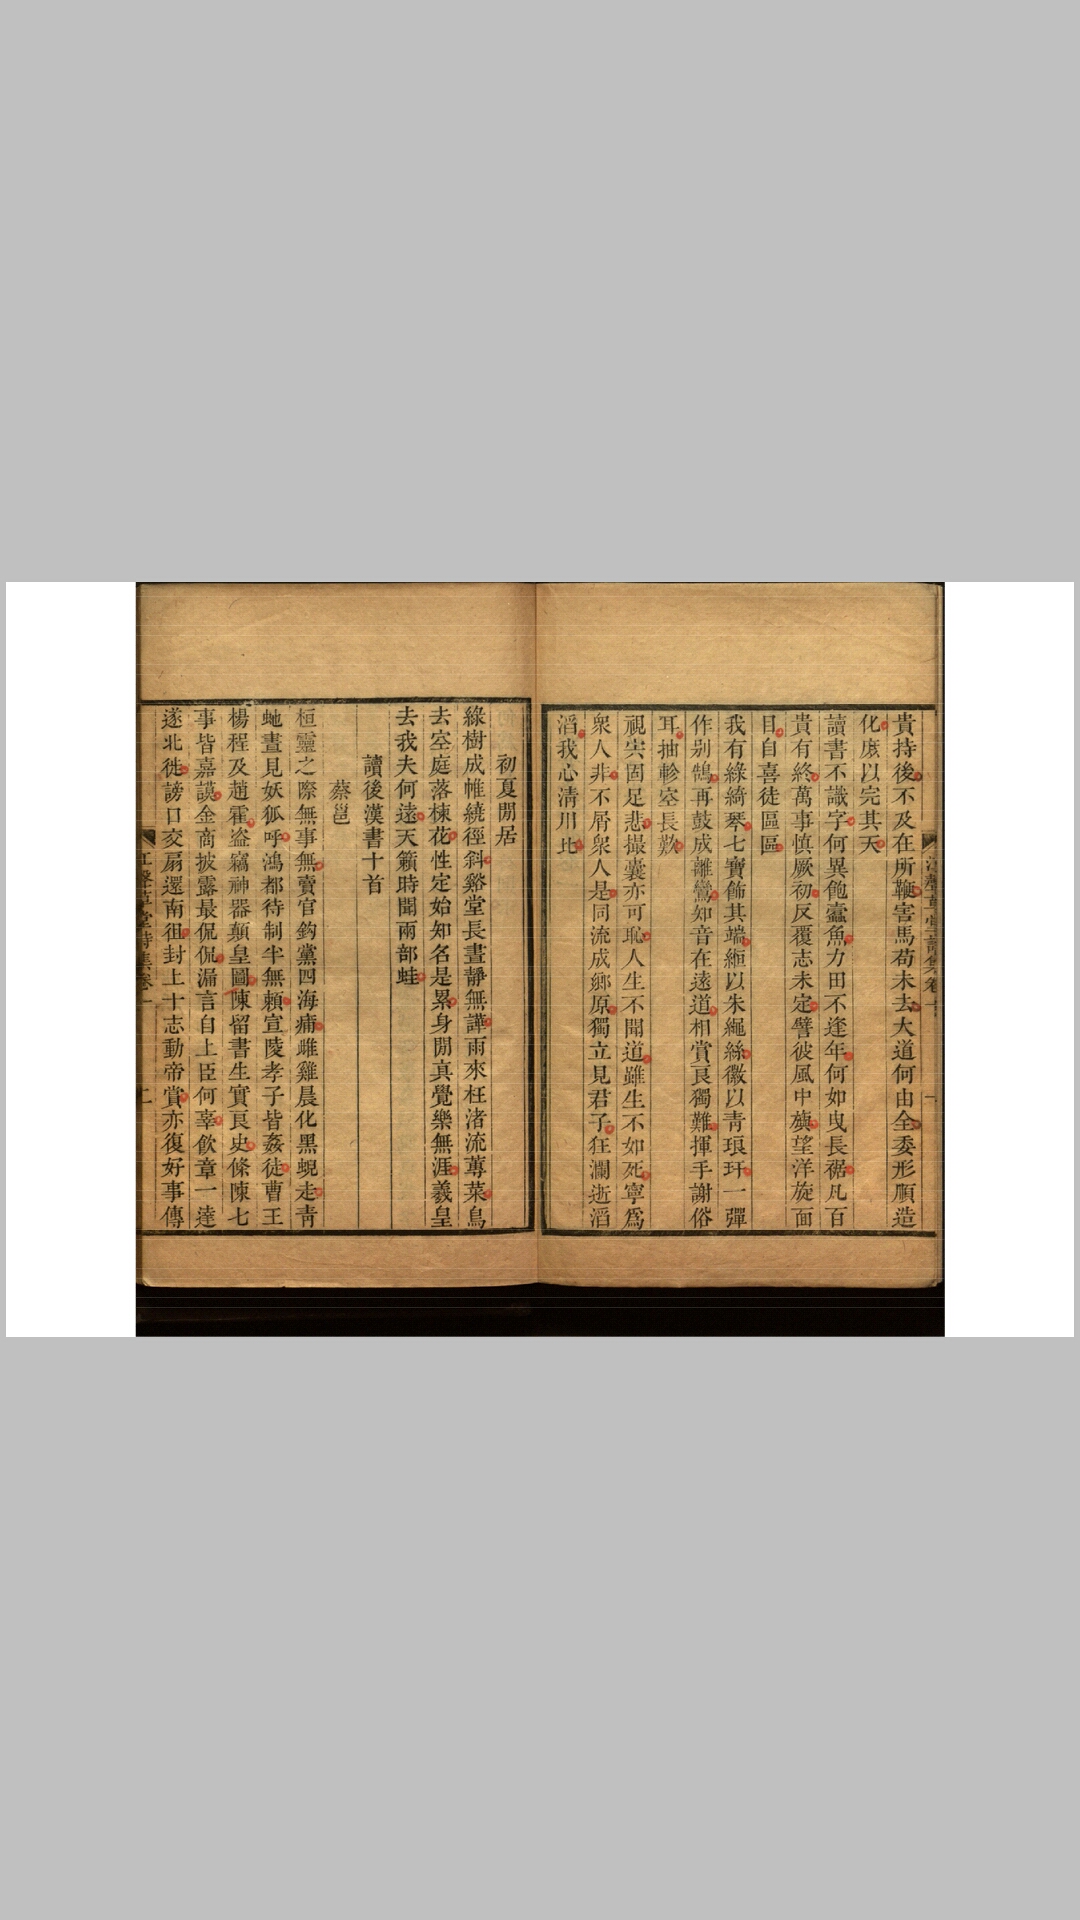 貴持後不及在所鞭害馬苟未去大道何由全委形順造
化庶以完其天
讀書不識字何異飽蠹魚力田不逢年何如曳長裾凡百
貴有終萬事慎厥初反覆志未定譬彼風中旟望洋旋面
目自喜徒區區
我有綠綺琴七寶飾其端絙以朱繩絲徽以青琅玕一彈
作別鵠再鼓成離鸞知音在遠道相賞良獨難揮手謝俗
耳抽軫空長歎
視宍固足悲撮囊亦可恥人生不聞道雖生不如死寧爲
衆人非不屑衆人是同流成鄉原獨立見君子狂瀾逝滔
滔我心清川比
初夏閒居
綠樹成帷繞徑斜谿堂長晝靜無譁雨來枉渚流蓴菜鳥
去空庭落楝花性定始知名是累身閒真覺樂無涯羲皇
去我夫何遠天籟時聞兩部蛙
讀後漢書十首
蔡邕
桓靈之際無事無賣官鉤黨四海痡雌雞晨化黑蜺走青
虵晝見妖狐呼鴻都待制半無賴宣陵孝子皆姦徒曹王
楊程及趙霍盜竊神器顛皇圖陳留書生實良史條陳七
事皆嘉謨金商披露最侃侃漏言自上臣何辜飮章一達
遂北徙謗口交扇還南徂封上十志動帝賞亦復好事傳
江聲草堂詩集卷一
二